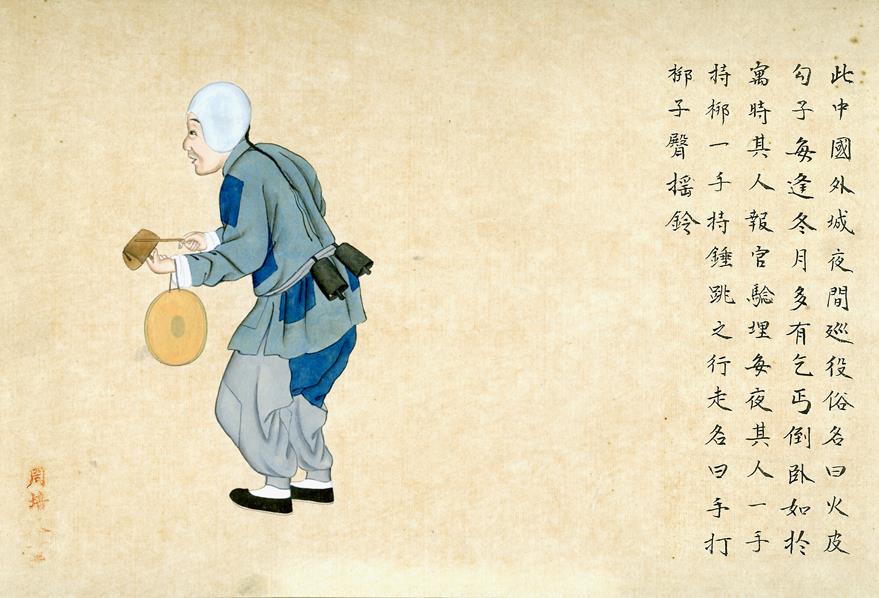 此中國外城夜間廵役俗名曰火皮
勾子每逢冬月多有乞丐倒卧如扵
寓時其人報官騐埋每夜其人一手
持梆一手持錘跳之行走名曰手打
梆子臀揺鈴
周培